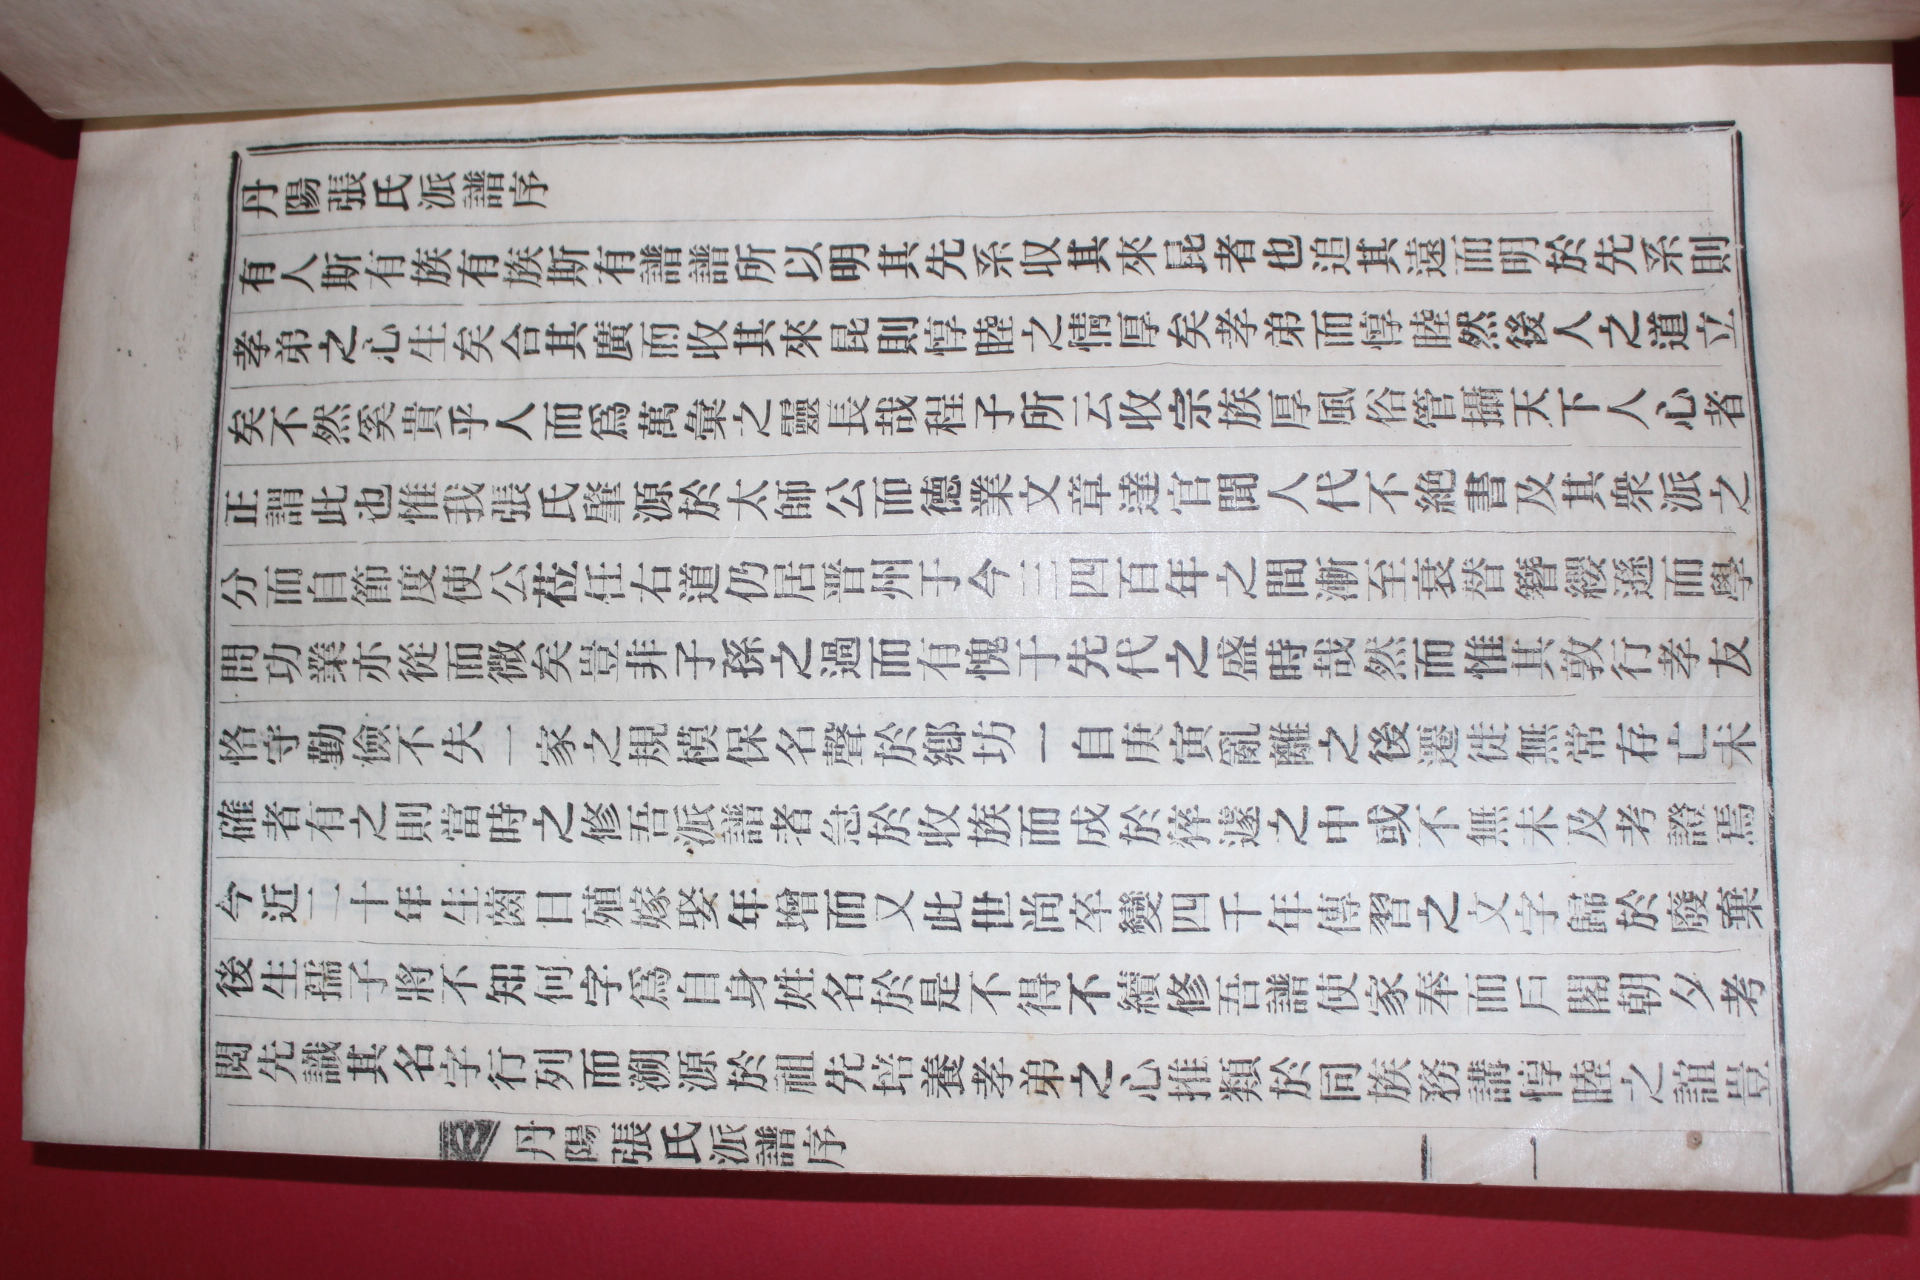 丹陽張氏派譜序
有人斯有族有族斯有譜譜所以明其先系収其來昆者也追其遠而明於先系則
孝弟之心生矣合其廣而收其來昆則惇睦之情厚矣孝弟而惇睦然後人之道立
矣不然奚貴乎人而爲萬彙之靈長哉程子所云收宗族厚風俗管攝天下人心者
正謂此也惟我張氏肇源於太師公而德業文章達官聞人代不絶書及其衆派之
分而自節度使公莅任右道仍居晋州于今三四百年之間漸至衰替簪纓遜而學
問功業亦從而微矣豈非子孫之過而有愧于先代之盛時哉然而惟其敦行孝友
恪守勤儉不失一家之規模保名聲於鄕坊一自庚寅亂離之後遷徙無常存亡未
確者有之則當時之修吾派譜者急於收族而成於猝遽之中或不無未及考證焉
今近二十年生齒日殖嫁娶年增而又此世尚卒變四千年傳習之文字歸於廢棄
後生孺子將不知何字爲自身姓名於是不得不續修吾譜使家奉而戶閣朝夕考
閱先識其名字行列而溯源於祖先培養孝弟之心推類於同族務講惇睦之誼豈
丹陽張氏派譜序 一